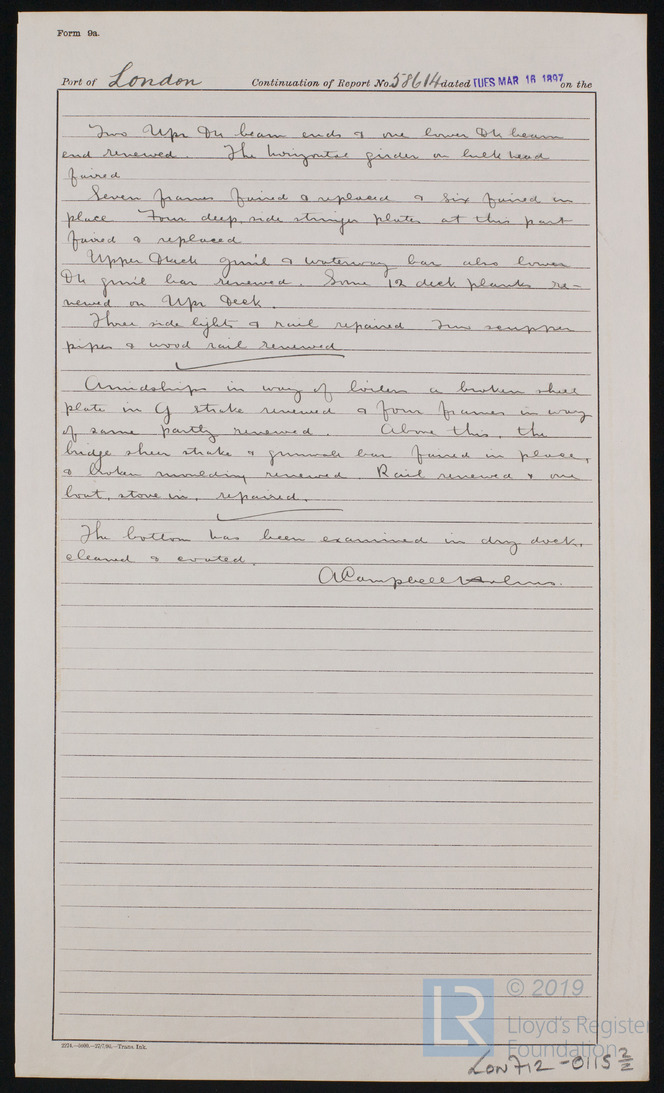 Form 9a.
Port of London Continuation of Report No. 58614 dated TUES MAR 16 1897 on the
Two Upr Dk beam ends & one lower Dk beam
end renewed. The horizontal girder on bulkhead
faired
Seven frames faired & replaced & six faired in
place. Four deep side stringer plates at this part
faired & replaced
Upper Deck gun'l & waterway bar also lower
Dk gun'l bar renewed. Some 12 deck planks re-
newed on Upr Deck.
Three side lights & rail repaired Two scupper
pipes & wood rail renewed
Amidships in way of boilers a broken shell
plate in G strake renewed & four frames in way
of same partly renewed. Above this, the
bridge sheer strake & gunwale bar faired in place,
& broken moulding renewed. Rail renewed & one
boat, stove in, repaired.
The bottom has been examined in dry dock,
cleaned & coated.
A Campbell Holms.
2274.—5000.—27/7/95.—Trans. Ink.
LR © 2019
Lloyd's Register
Foundation
LON712-0115 2/2